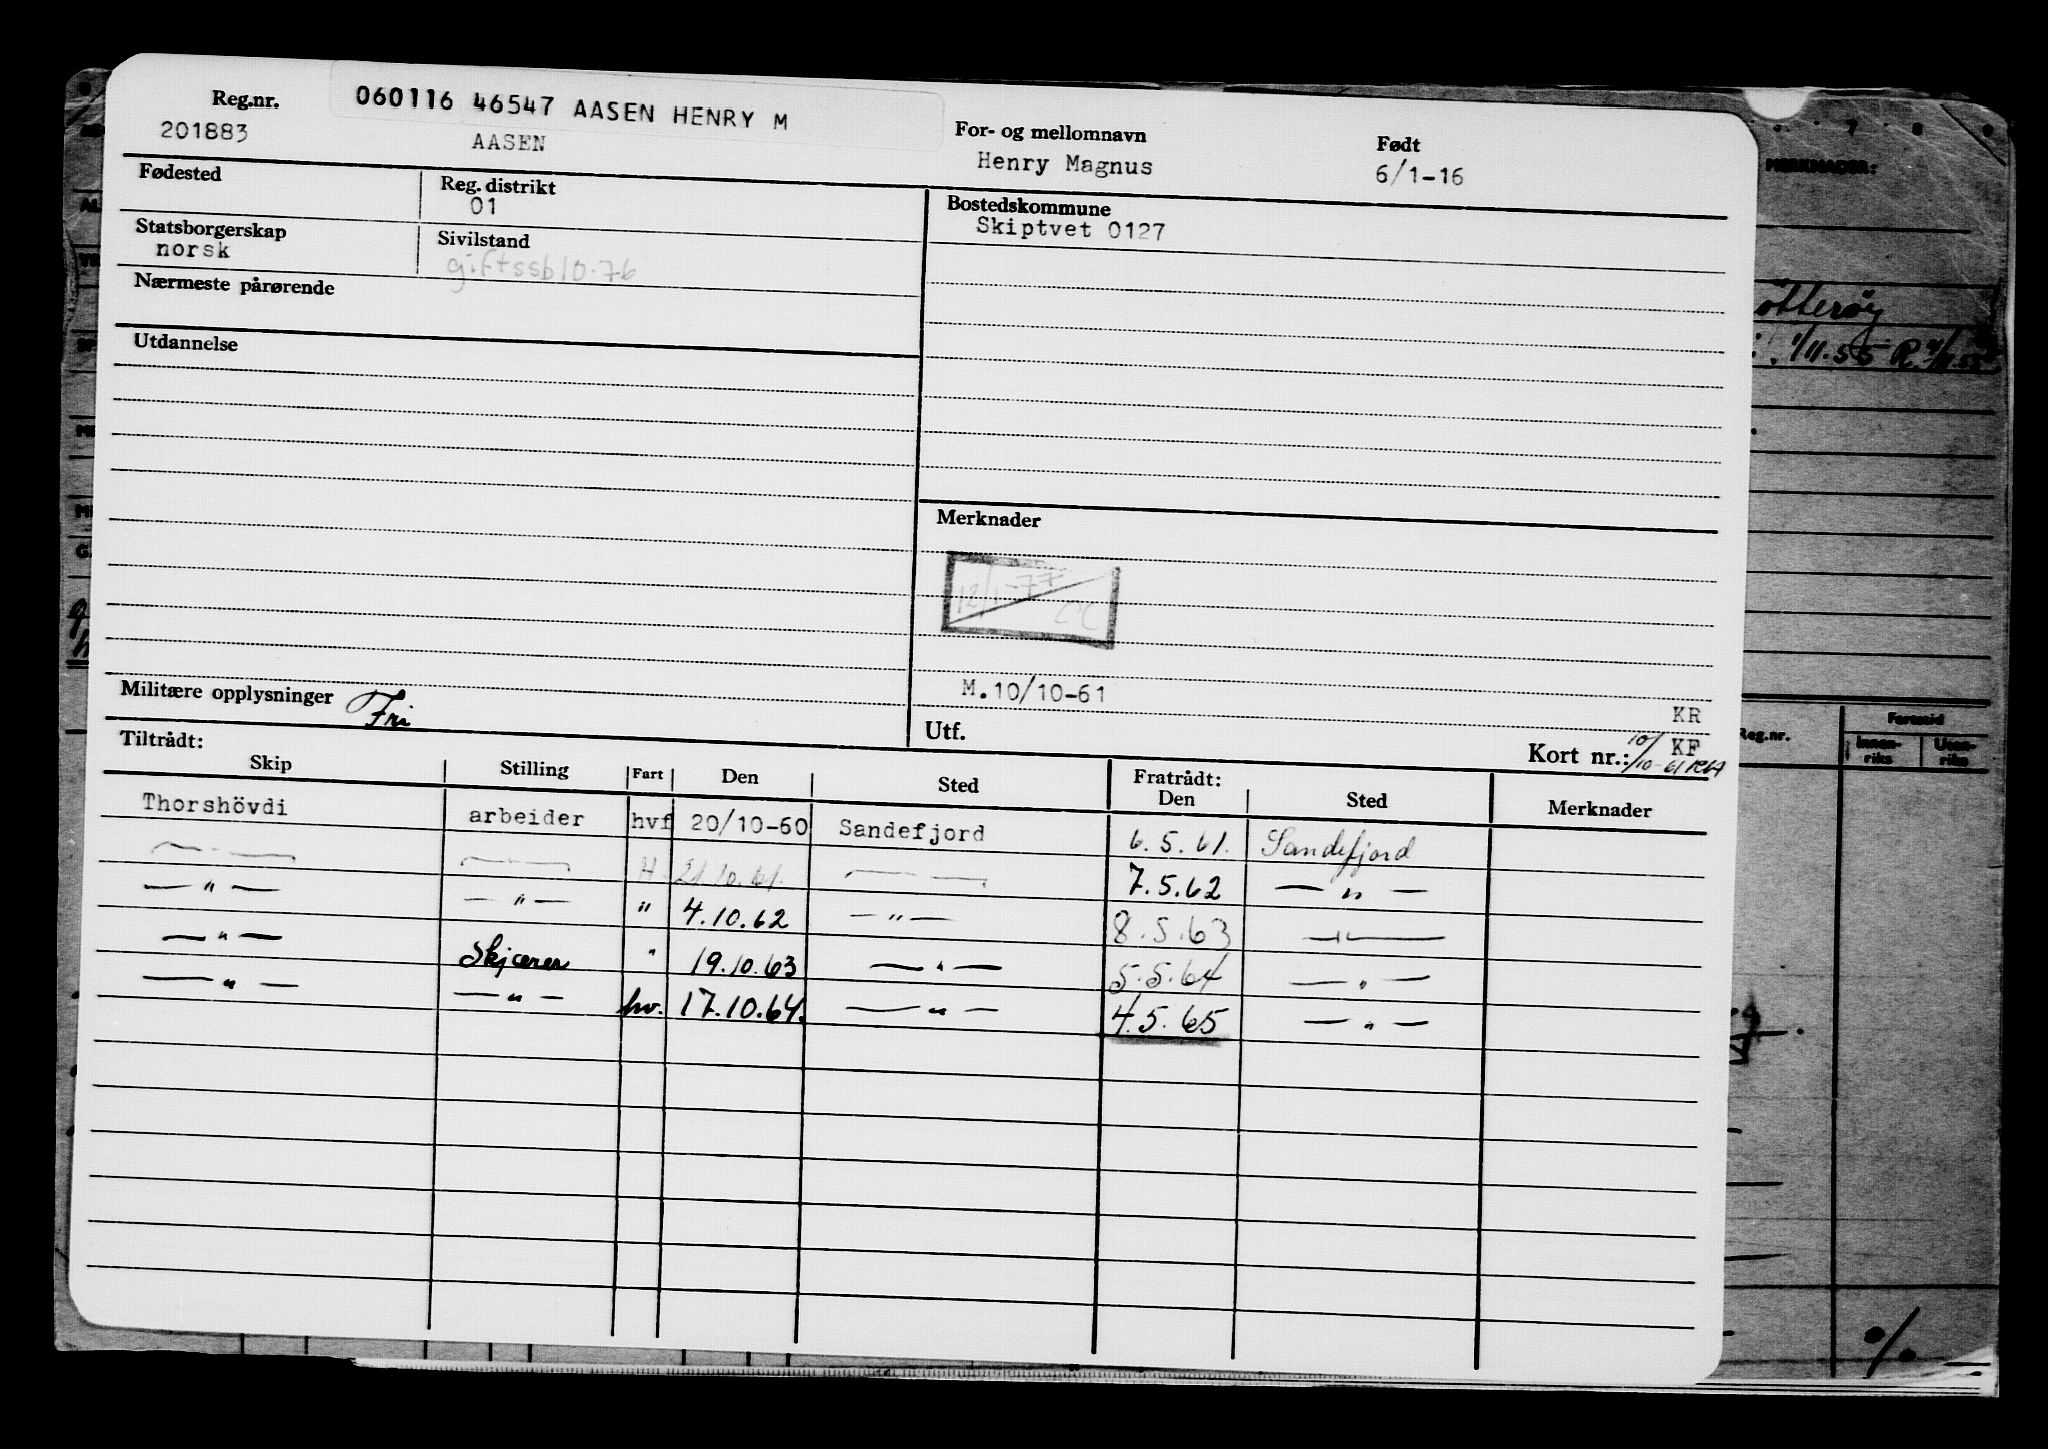 Reg.nr. 060116 46547 AASEN HENRY M
201883 AASEN
For- og mellomnavn Født
Henry Magnus 6/1-16
Fødested Reg. distrikt
01
Bostedskommune
Skiptvet 0127
Statsborgerskap Sivilstand
norsk gift ssb 10.76
Nærmeste pårørende
Utdannelse
Merknader
12/1-77
CC
M.10/10-61
KR
Militære opplysninger Fri
Utf. Kort nr.: 10/10-61 KF
Tiltrådt: Fratrådt:
Skip Stilling Fart Den Sted Den Sted Merknader
Thorshövdi arbeider hvf 20/10-60 Sandefjord 6.5.61. Sandefjord
— — — — H 21.10.61. — — 7.5.62 — " —
— " — — " — " 4.10.62 — " — 8.5.63 — " —
— " — Skjærer " 19.10.63 — " — 5.5.64 — " —
— " — — " — hv. 17.10.64. — " — 4.5.65 — " —
MERKNADER:
otterøy
1/11.55 R.
Reg.nr.
Fartstid
Innen-
riks
Uten-
riks